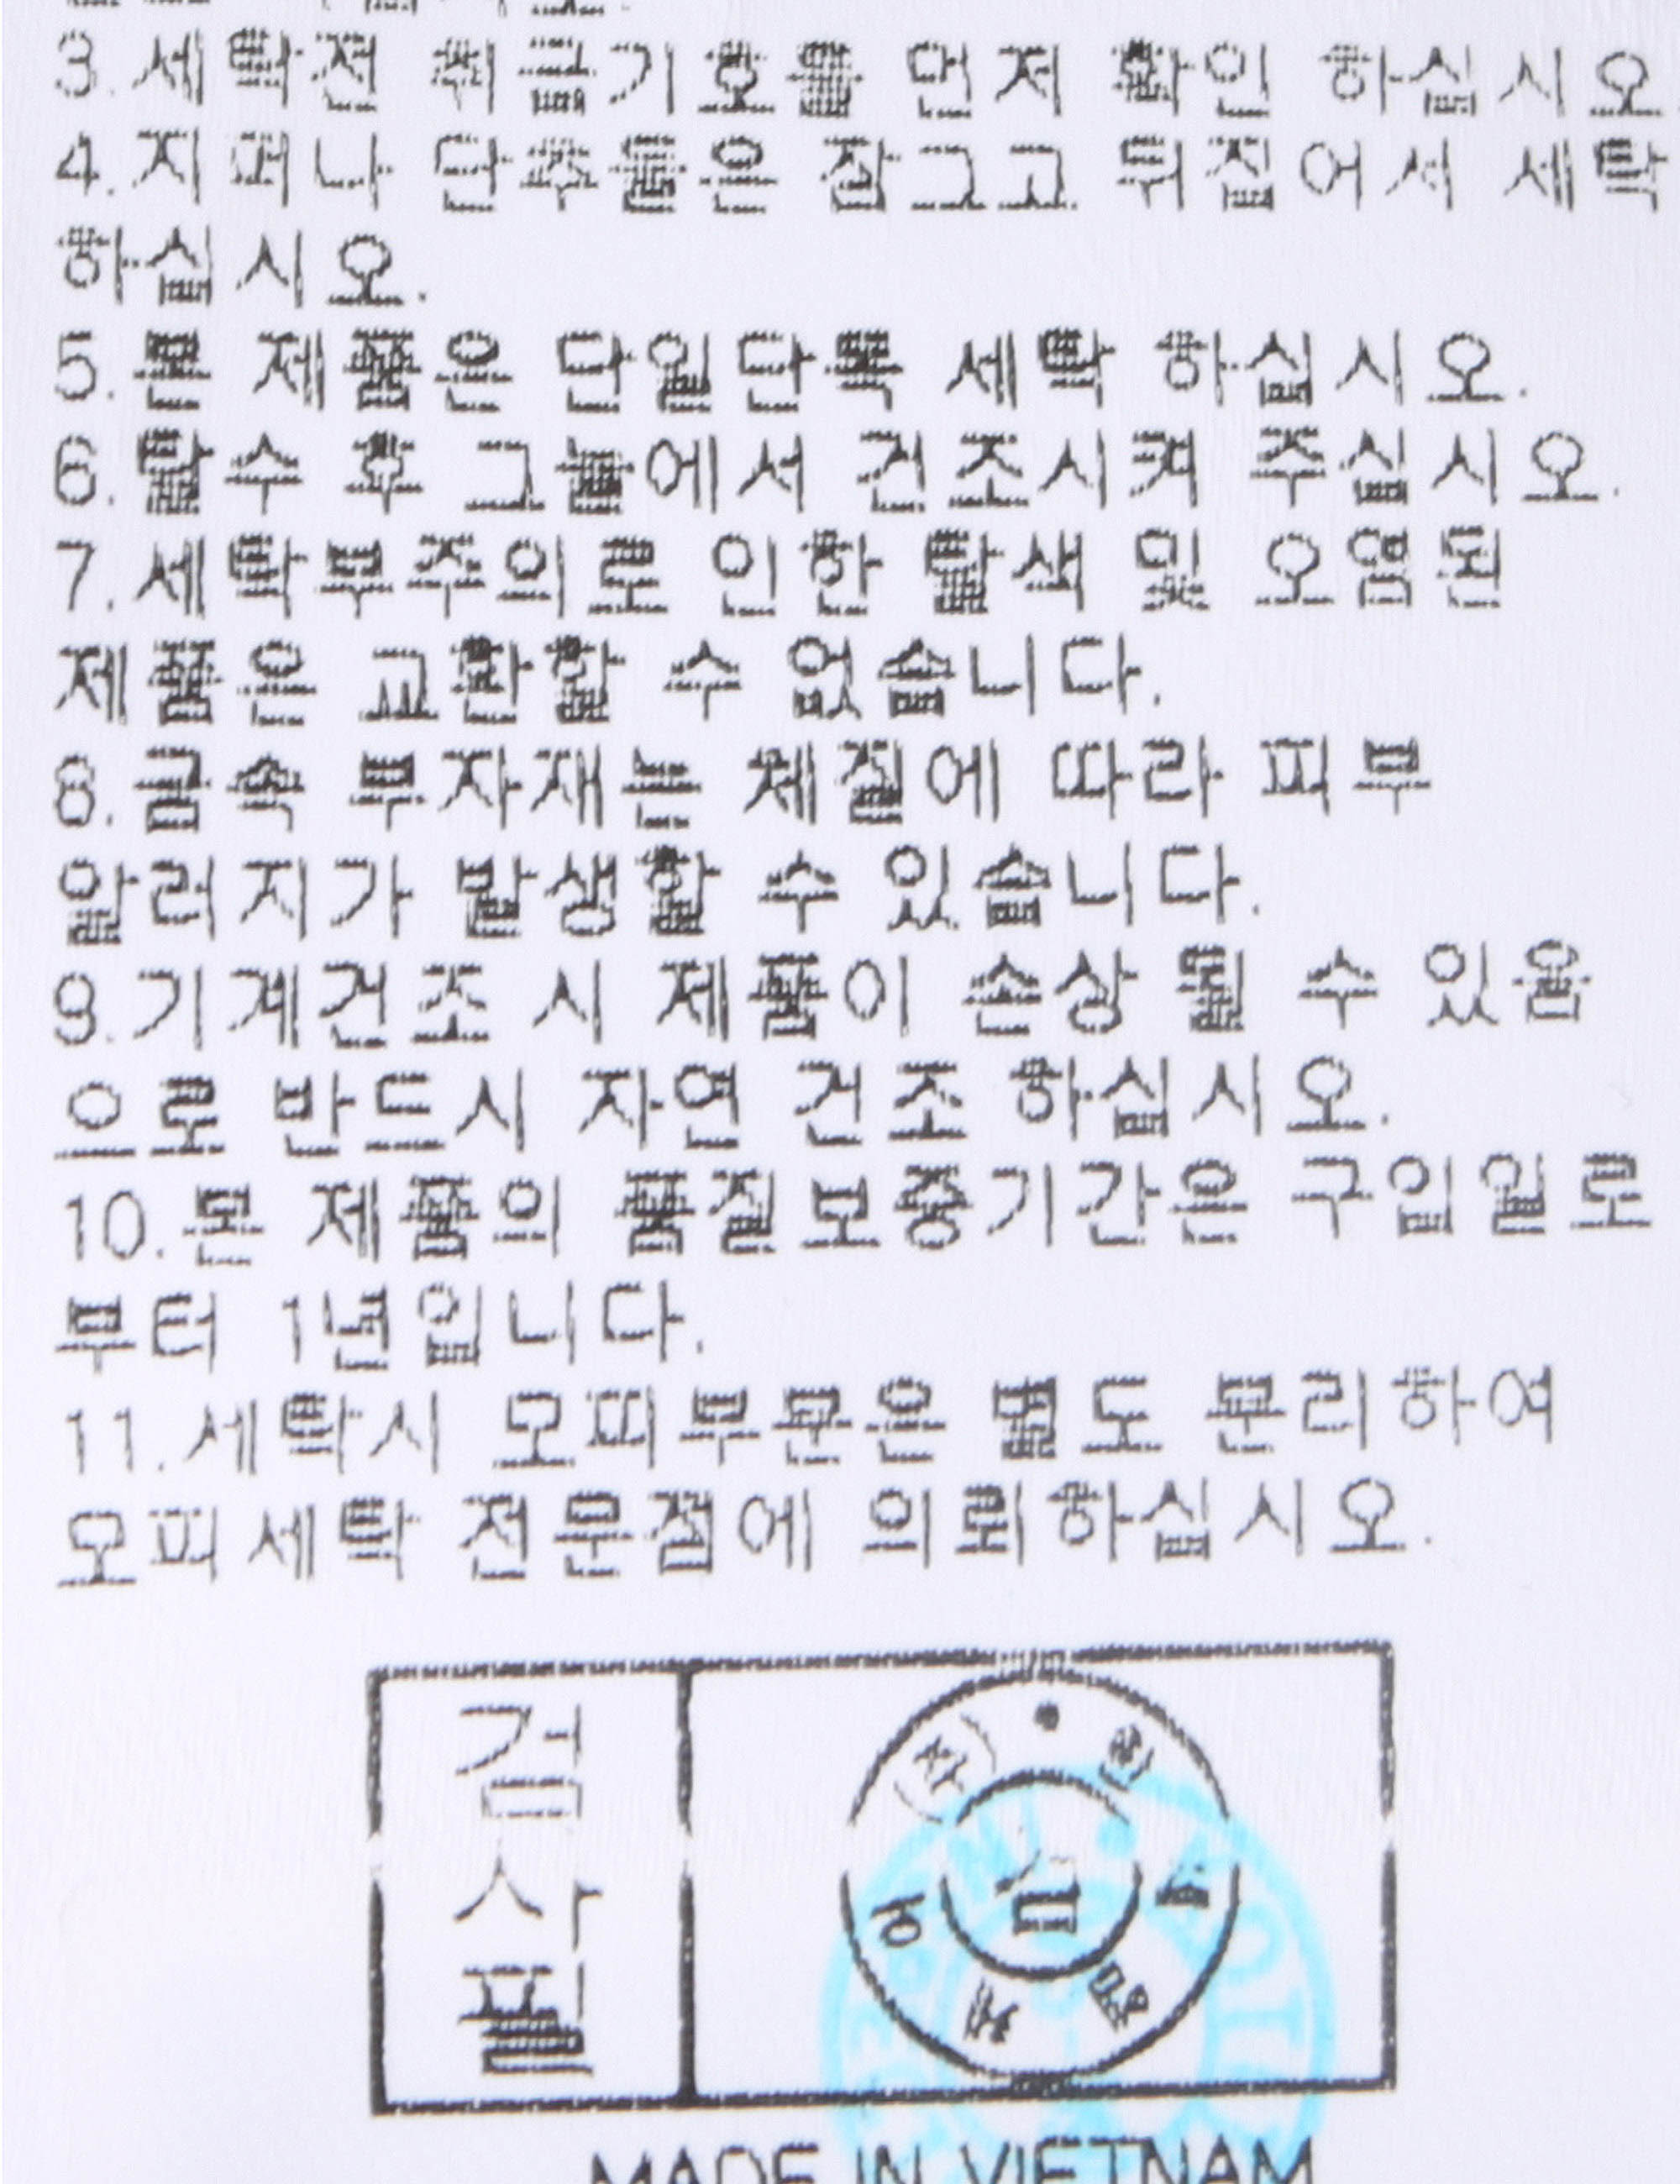 3.세탁전 취급기호를 먼저 확인 하십시오
4.지퍼나 단추들은 잠그고 뒤집어서 세탁
하십시오.
5.본 제품은 단일단독 세탁 하십시오.
6.탈수 후 그늘에서 건조시켜 주십시오.
7.세탁부주의로 인한 탈색 및 오염된
제품은 교환할 수 없습니다.
8.금속 부자재는 체질에 따라 피부
알러지가 발생할 수 있습니다.
9.기계건조 시 제품이 손상 될 수 있음
으로 반드시 자연 건조 하십시오.
10.본 제품의 품질보증기간은 구입일로
부터 1년입니다.
11.세탁시 모피부문은 별도 분리하여
모피세탁 전문점에 의뢰하십시오.
검사필
MADE IN VIETNAM